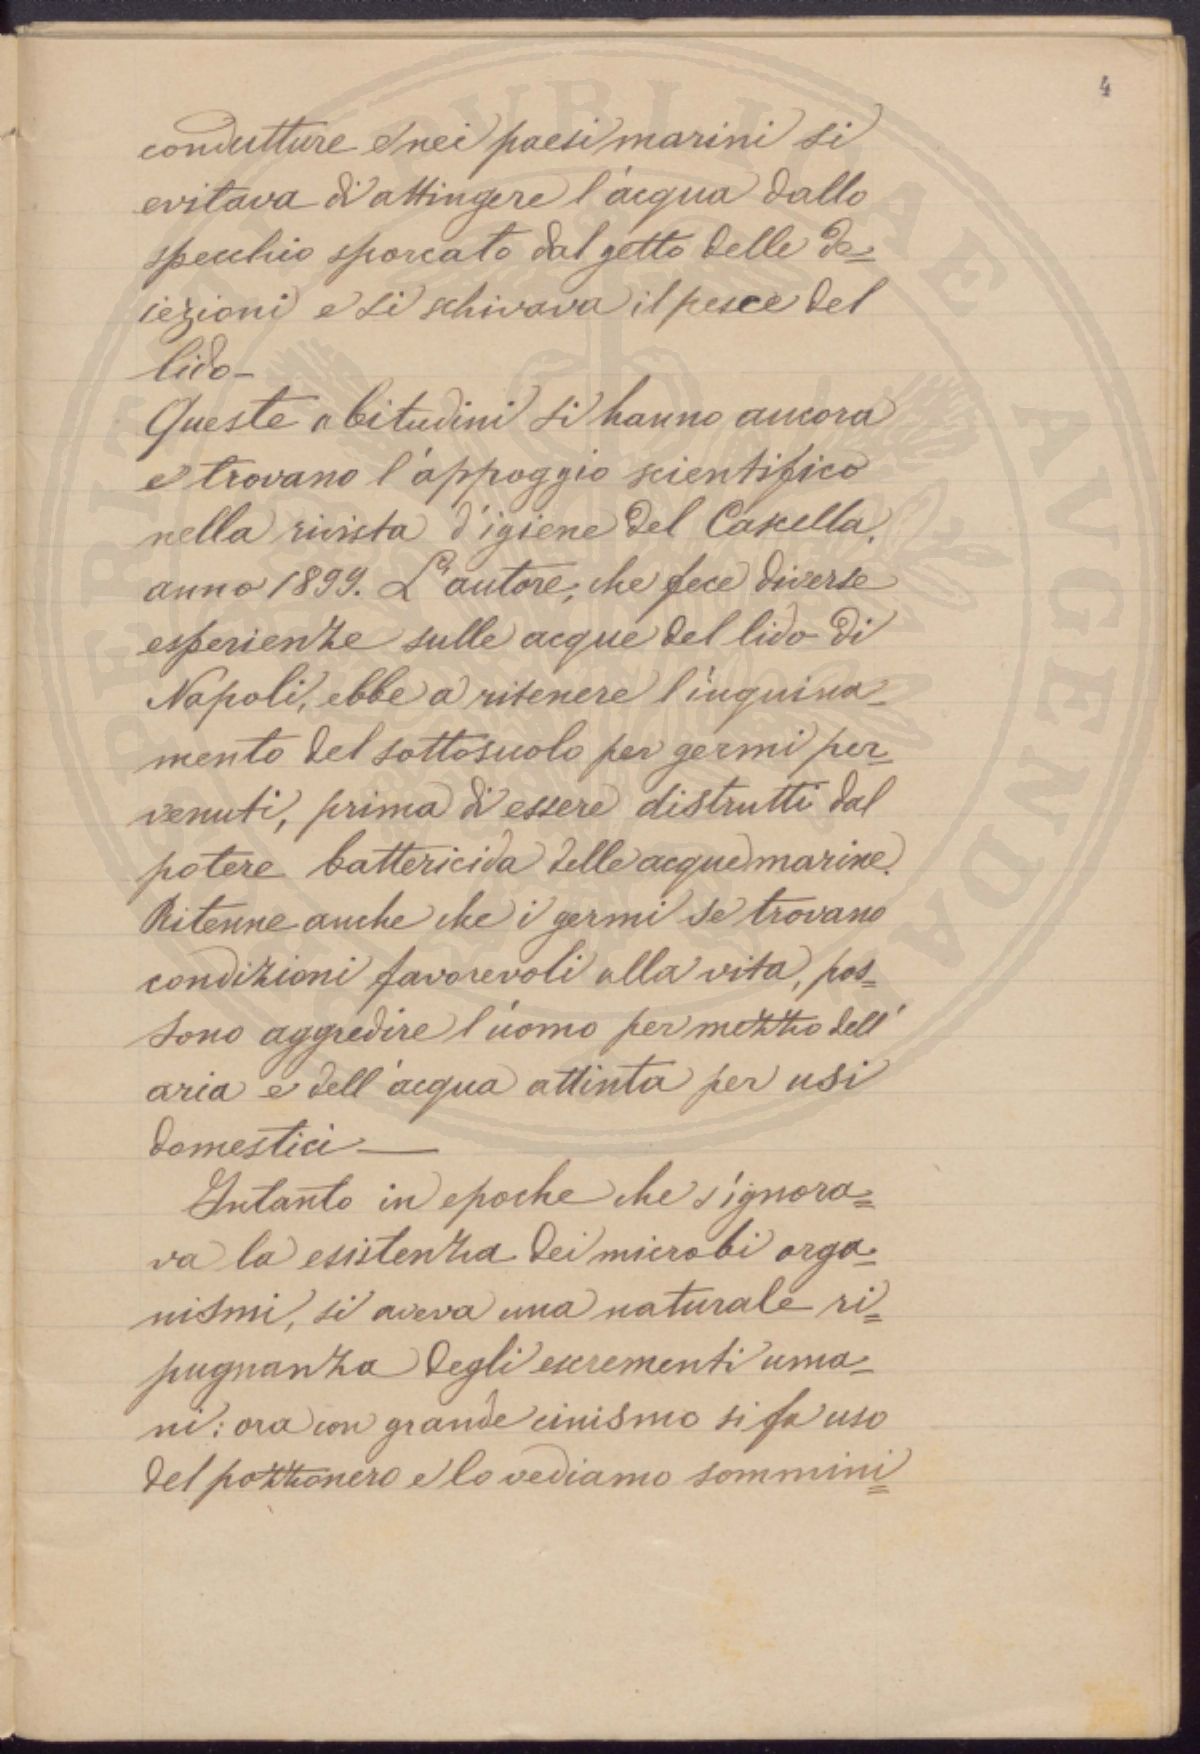 4
condutture e nei paesi marini si
evitava di attingere l'acqua dallo
specchio sporcato dal getto delle de=
iezioni e si schivava il pesce del
lido—
Queste abitudini si hanno ancora
e trovano l'appoggio scientifico
nella rivista d'igiene del Casella,
anno 1899. L'autore, che fece diverse
esperienze sulle acque del lido di
Napoli, ebbe a ritenere l'inquina-
mento del sottosuolo per germi per-
venuti, prima di essere distrutti dal
potere battericida delle acque marine.
Ritenne anche che i germi se trovano
condizioni favorevoli alla vita, pos=
sono aggredire l'uomo per mezzo dell'
aria e dell'acqua attinta per usi
domestici—
Intanto in epoche che s'ignora=
va la esistenza dei microbi orga=
nismi, si aveva una naturale ri=
pugnanza degli escrementi uma-
ni: ora con grande cinismo si fa uso
del pozzonero e lo vediamo sommini=
PUBLICAE AUGENDA